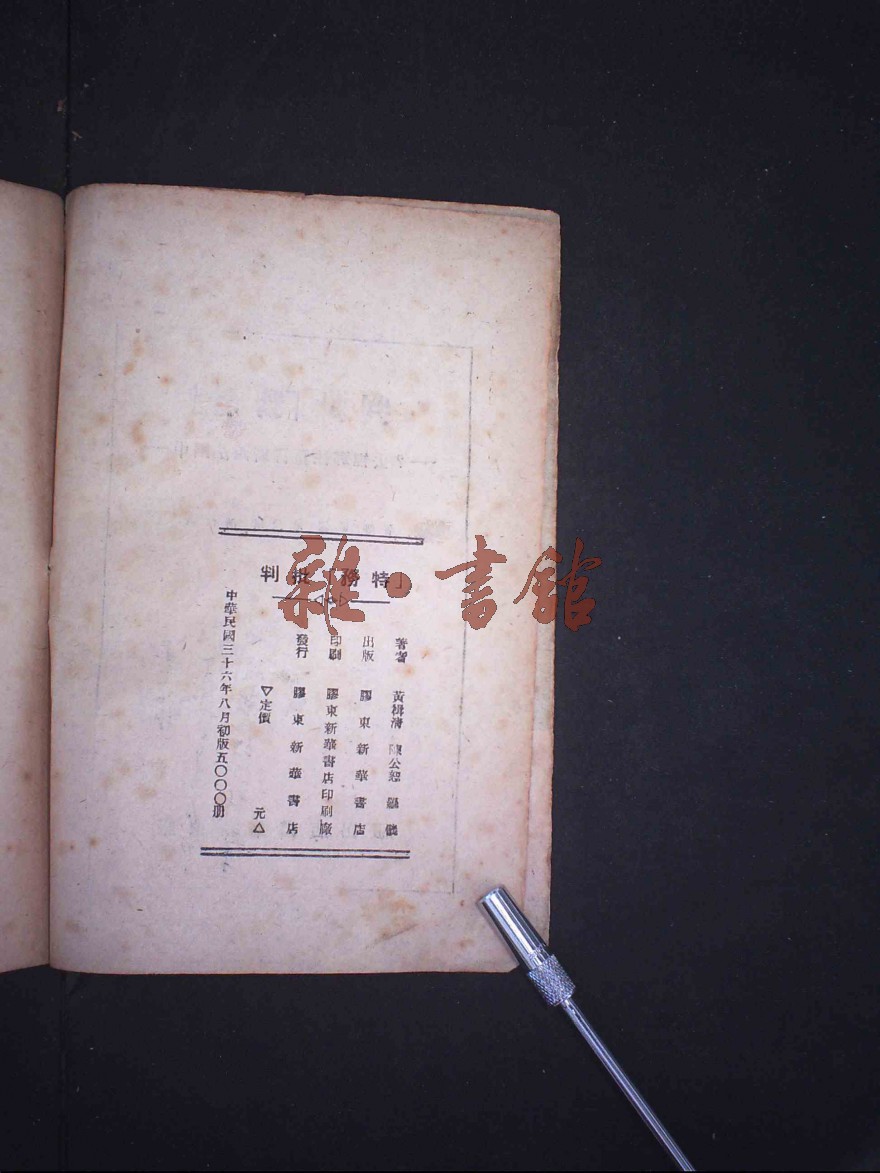 「特務」批判
著者 黃楫清 陳公恕
出版 膠東新華書店
印刷 膠東新華書店印刷廠
發行 膠東新華書店
▽定價 元△
中華民國三十六年八月初版五〇〇〇册
雜·書館